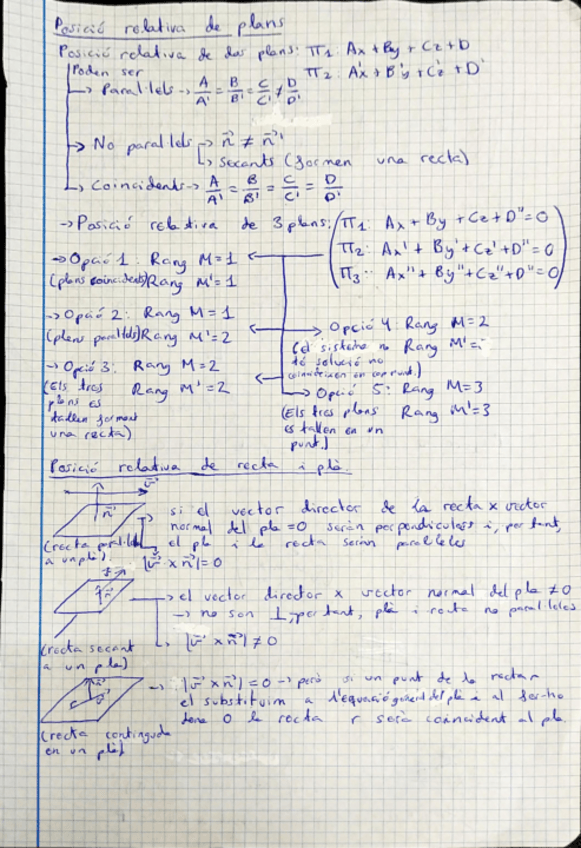 Posició relativa de plans
Posició relativa de dos plans: Π1: Ax + By + Cz + D
Π2: A'x + B'y + C'z + D'
Poden ser
→ Paral·lels → A/A' = B/B' = C/C' ≠ D/D'
→ No paral·lels → n⃗ ≠ n⃗'
↳ secants (formen una recta)
→ Coincidents → A/A' = B/B' = C/C' = D/D'
→ Posició relativa de 3 plans: Π1: Ax + By + Cz + D" = 0
Π2: Ax' + By' + Cz' + D" = 0
Π3: Ax" + By" + Cz" + D" = 0
→ Opció 1: Rang M = 1
(plans coincidents) Rang M' = 1
→ Opció 2: Rang M = 1
(plans paral·lels) Rang M' = 2
→ Opció 3: Rang M = 2
(Els tres Rang M' = 2
plans es
tallen formant
una recta)
→ Opció 4: Rang M = 2
(el sistema no Rang M' =
té solució no
coincideixen en cap punt.)
→ Opció 5: Rang M = 3
(Els tres plans Rang M' = 3
es tallen en un
punt.)
Posició relativa de recta i plà.
v⃗
n⃗
si el vector director de la recta x vector
normal del pla = 0 seran perpendiculars i, per tant,
el pla i la recta seran paral·lels
(recta paral·lela
a un pla).
|v⃗ x n⃗| = 0
n⃗
→ el vector director x vector normal del pla ≠ 0
→ no son ⊥, per tant, pla i recta no paral·lels
↳ |v⃗ x n⃗| ≠ 0
(recta secant
a un pla)
→ |v⃗ x n⃗| = 0 → però si un punt de la recta r
el substituim a l'equació general del plà i al fer-ho
dona 0 la recta r serà coincident al pla.
(recta continguda
en un plà)